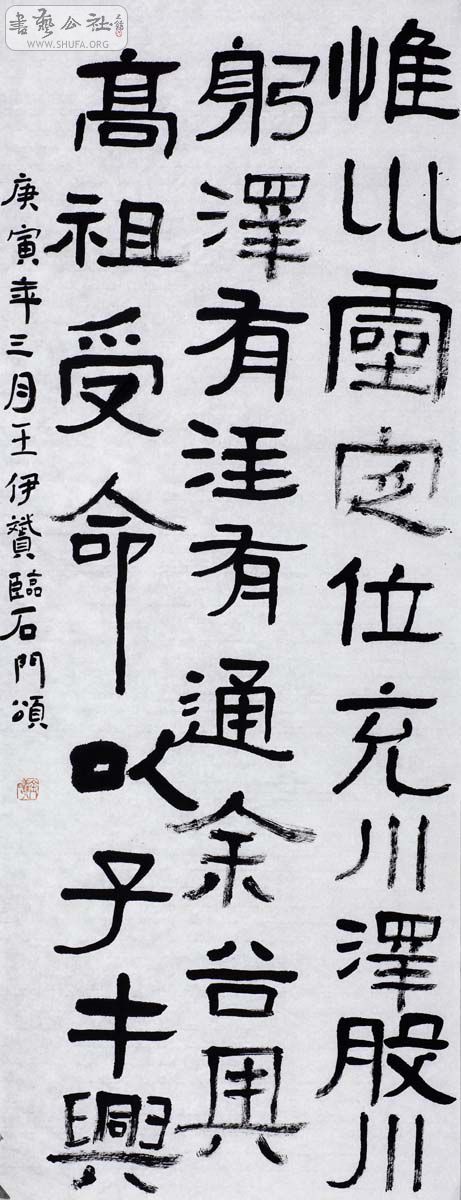 惟巛靈定位充川澤股川
躬澤有注有通余谷其
高祖受命以子午興
庚寅年三月王伊贇臨石門頌
書藝公社
WWW.SHUFA.ORG